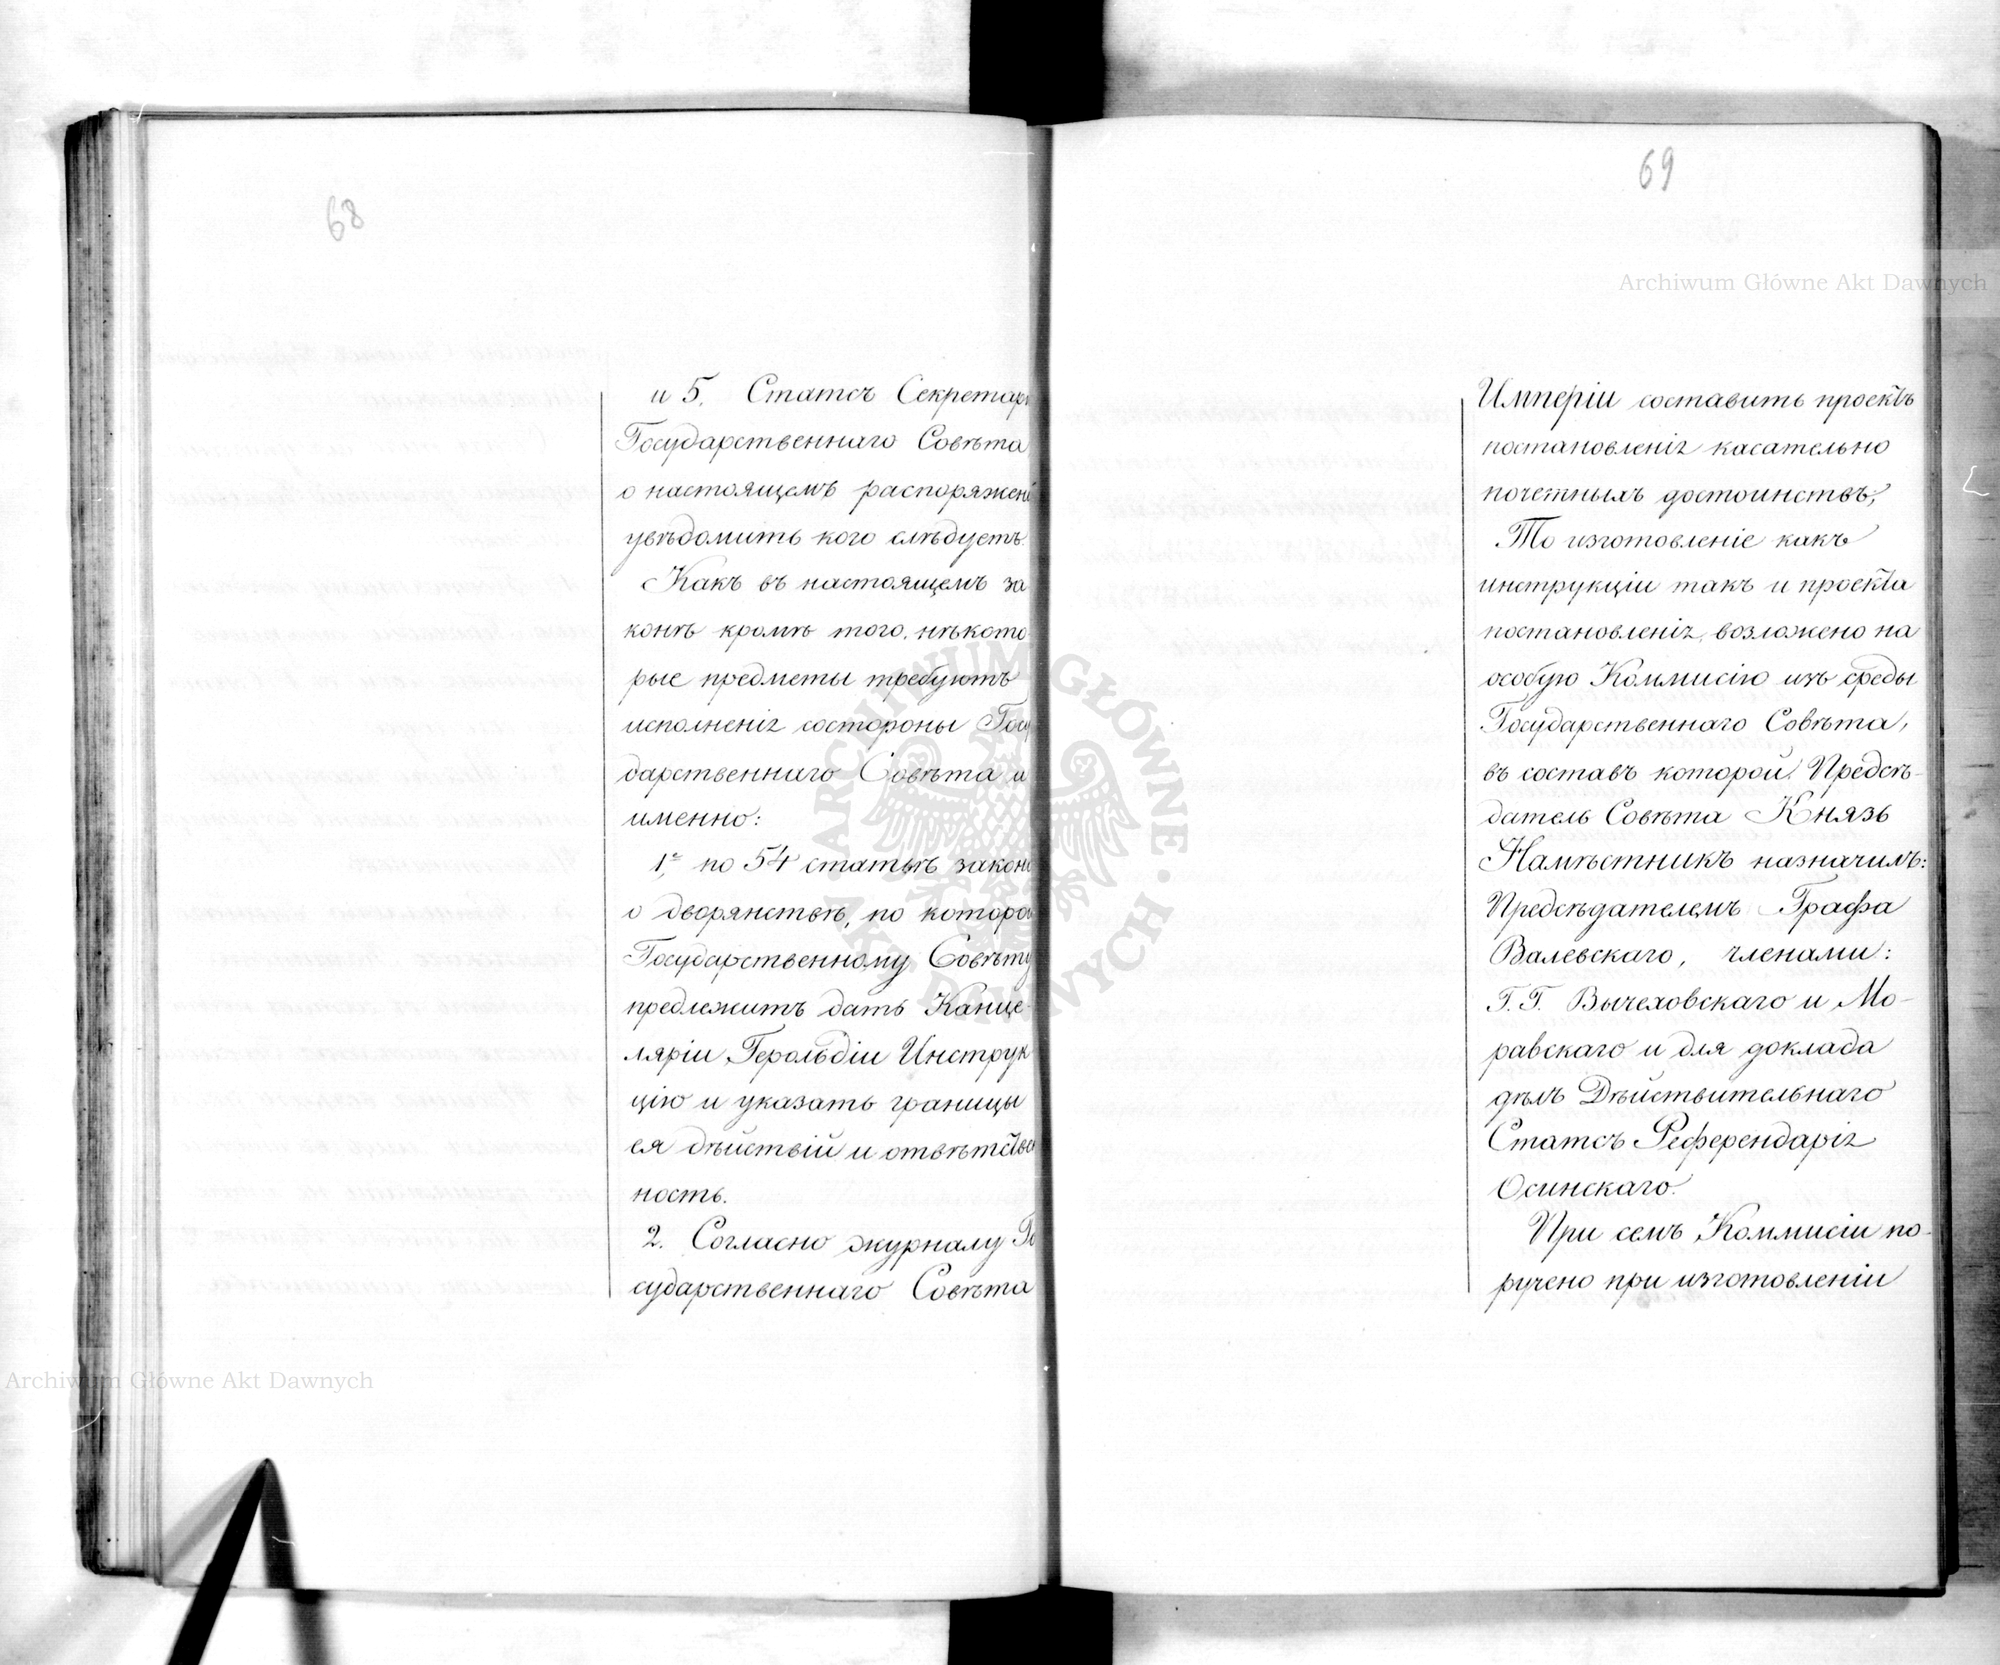 68
и 5. Статсъ Секретарь
Государственнаго Совѣта
о настоящемъ распоряжені
увѣдомитъ кого слѣдуетъ.
Какъ въ настоящемъ за
конѣ кромѣ того, нѣкото
рые предметы требуютъ
исполненія состороны Госу
дарственнаго Совѣта а
именно:
1, по 54 статьѣ закона
о дворянствѣ, по которой
Государственному Совѣту
предлежитъ дать Канце-
ляріи Герольдіи Инструк
цію и указать границы
ея дѣйствій и отвѣтствен
ность.
2. Согласно журналу Го
сударственнаго Совѣта
69
Имперіи составить проектъ
постановленія касательно
почетныхъ достоинствъ,
То изготовленіе какъ
инструкціи такъ и проекта
постановленія, возложено на
особую Коммисію изъ среды
Государственнаго Совѣта,
въ составъ которой, Предсѣ-
датель Совѣта Князь
Намѣстникъ назначилъ:
Предсѣдателемъ Графа
Валевскаго, членами:
Г.Г. Вычеховскаго и Мо-
равскаго и для доклада
дѣлъ Дѣйствительнаго
Статсъ Референдарія
Осинскаго.
При семъ Коммисіи по-
ручено при изготовленіи
Archiwum Główne Akt Dawnych
Archiwum Główne Akt Dawnych
ARCHIWUM GŁÓWNE AKT DAWNYCH